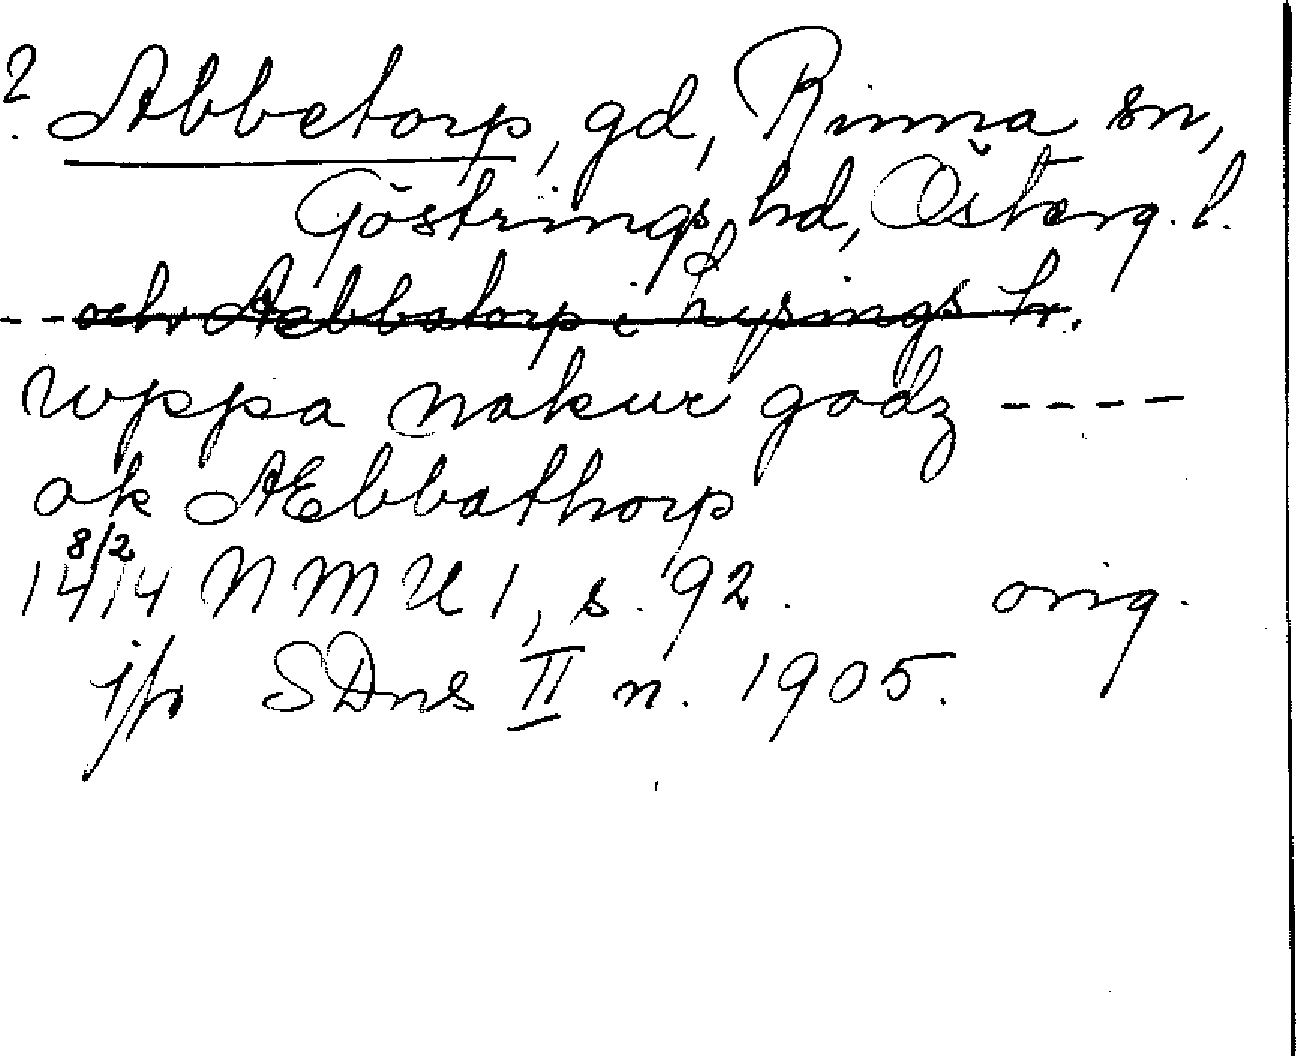 ? Abbetorp, gd, Rinna sn,
Göstrings hd, Österg. l.
-- och Aebbatorp i Lysings hr.
wppa nakur godz ----
ok AEbbathorp
1414 8/2 NMU 1, s. 92. orig.
jfr SDns II n. 1905.